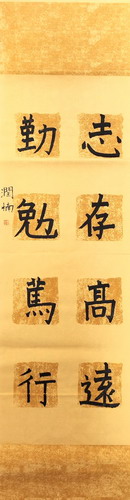 志存高遠
勤勉篤行
潤物